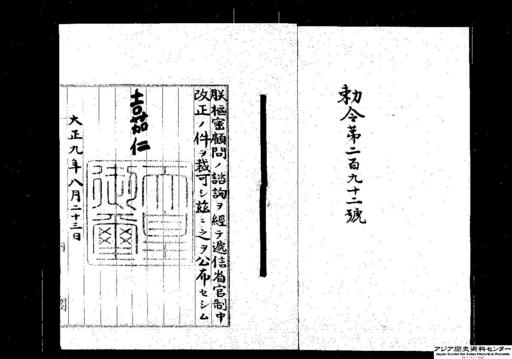 勅令第二百九十二號
朕樞密顧問ノ諮詢ヲ經テ遞信省官制中
改正ノ件ヲ裁可シ茲ニ之ヲ公布セシム
嘉仁
天皇御璽
大正九年八月二十三日
内閣
アジア歴史資料センター
Japan Center for Asian Historical Records